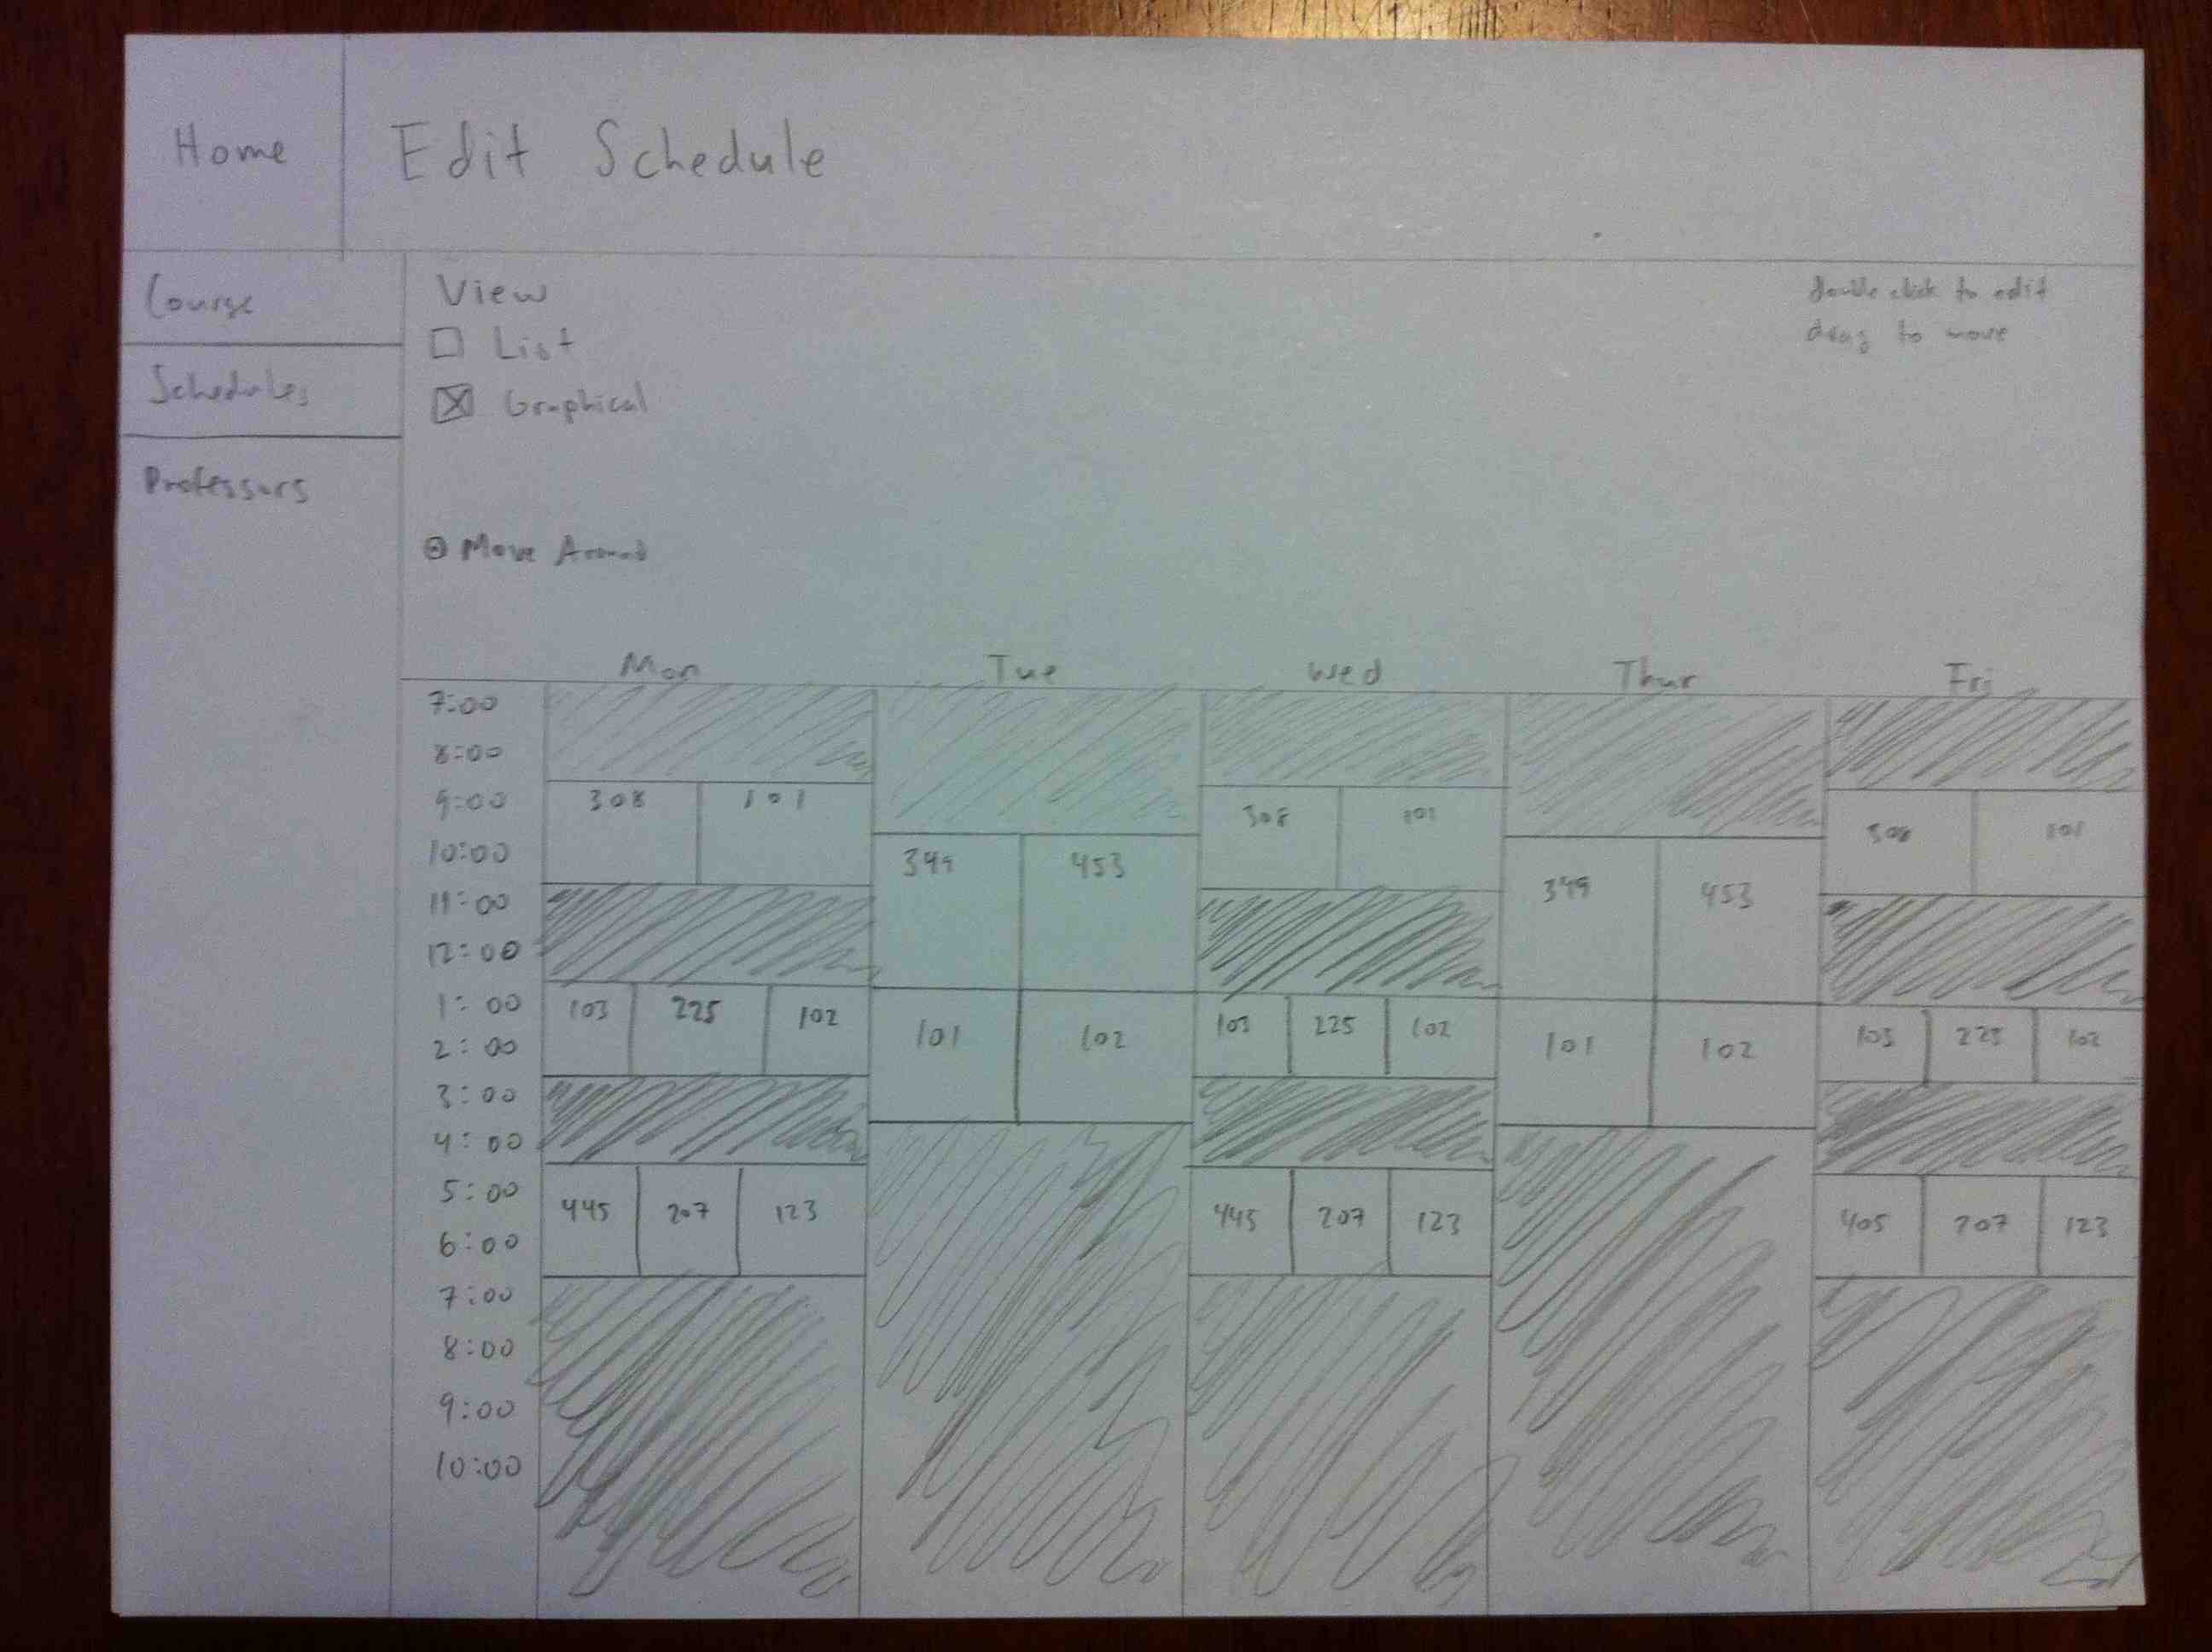 Home
Edit Schedule
Course
Schedules
Professors
View
List
Graphical
double click to edit
drag to move
Move Around
Mon Tue Wed Thur Fri
7:00
8:00
9:00 308 101 308 101 308 101
10:00 349 453 349 453
11:00
12:00
1:00 103 225 102 103 225 102 103 225 102
2:00 101 102 101 102
3:00
4:00
5:00 445 207 123 445 207 123 405 207 123
6:00
7:00
8:00
9:00
10:00